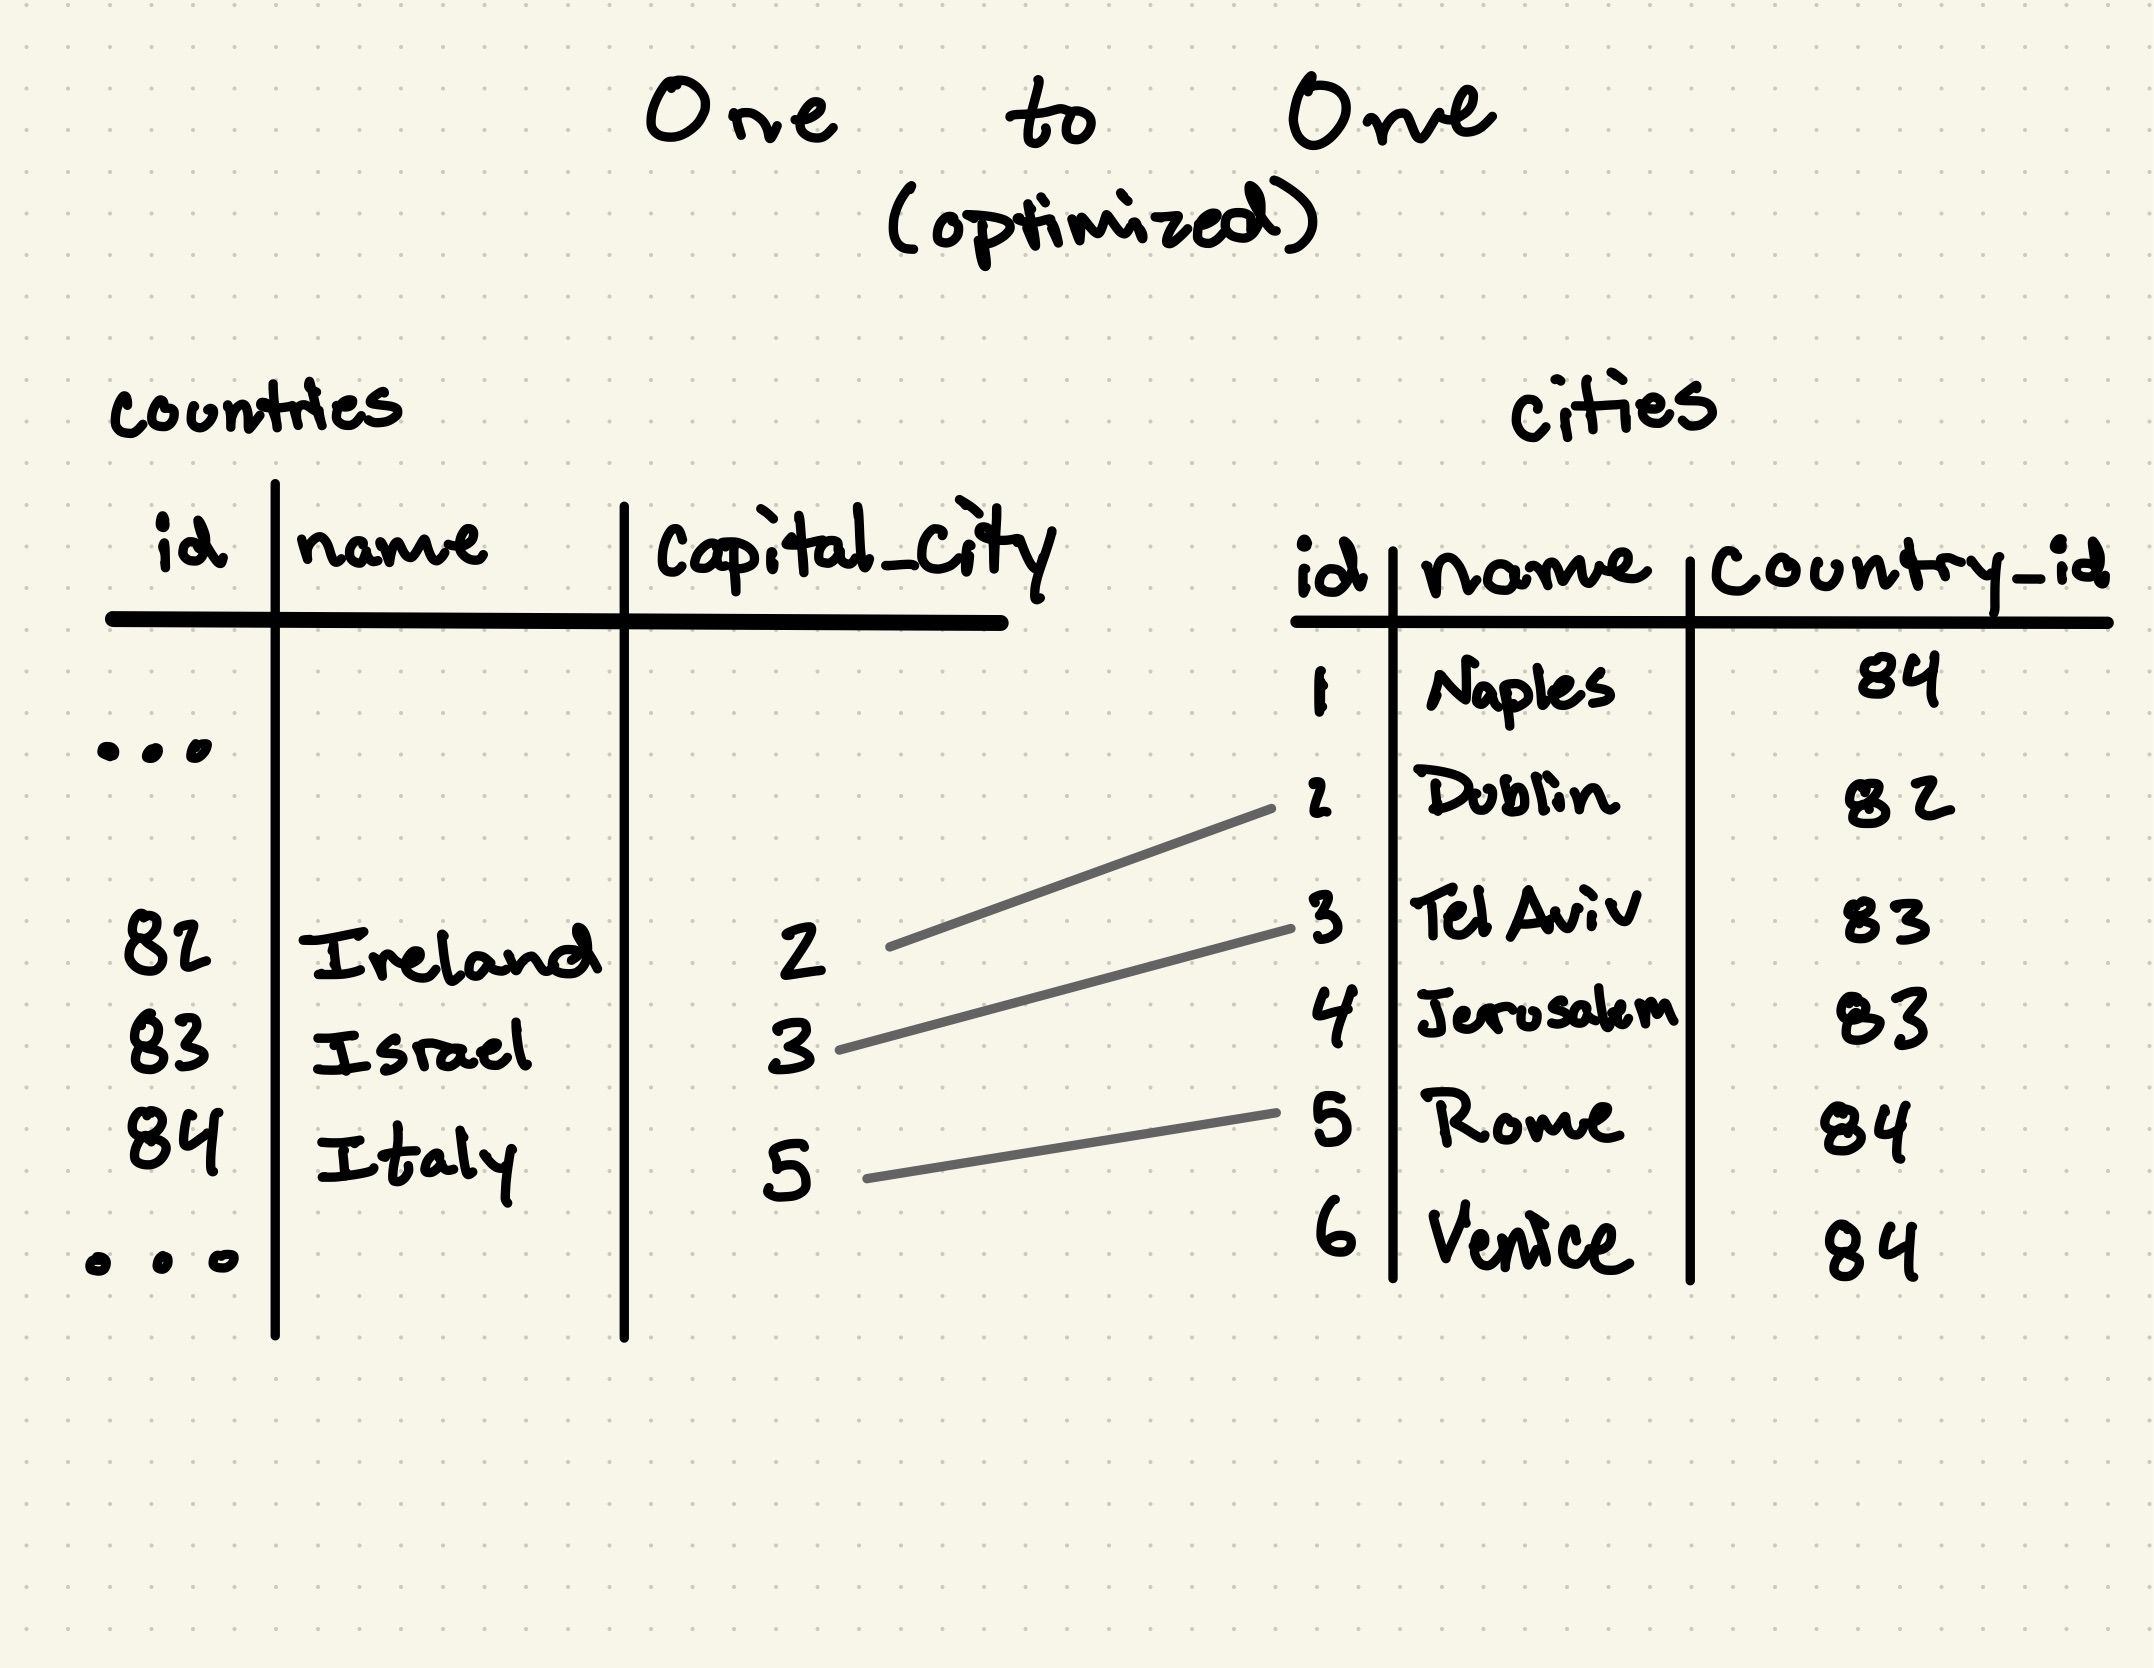 One to One
(optimized)
countries
id name capital_city
...
82 Ireland 2
83 Israel 3
84 Italy 5
...
cities
id name country_id
1 Naples 84
2 Dublin 82
3 Tel Aviv 83
4 Jerusalem 83
5 Rome 84
6 Venice 84